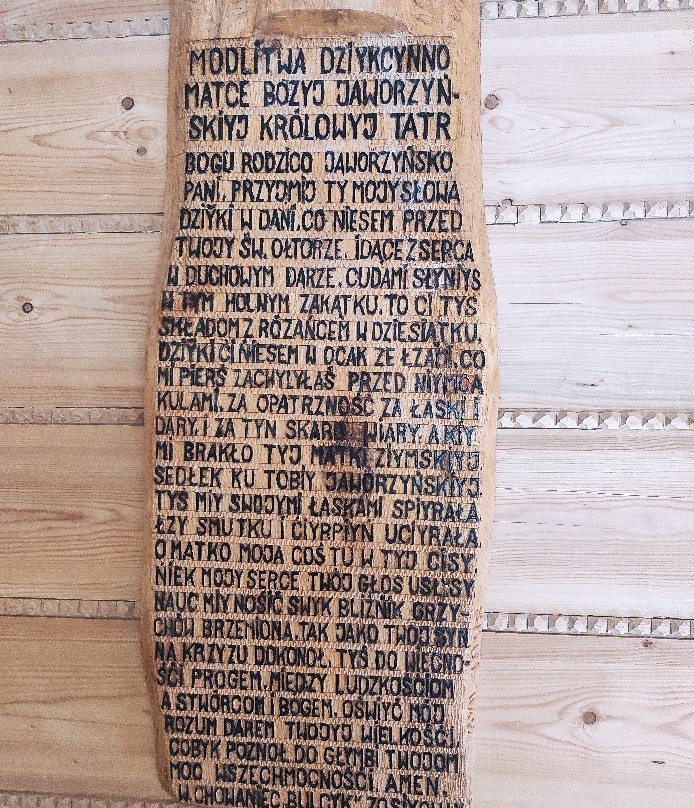 MODLITWA DZIYKCYNNO
MATCE BOZYJ JAWORZYŃ-
SKIYJ KRÓLOWYJ TATR
BOGU RODZICO JAWORZYŃSKO
PANI. PRZYJMIJ TY MOJY SŁOWA
DZIYKI W DANI, CO NIESEM PRZED
TWOJY ŚW. OŁTORZE. IDĄCE Z SERCA
W DUCHOWYM DARZE. CUDAMI SŁYNIYS
W TYM HOLNYM ZAKĄTKU. TO CI TYS
SKŁADOM Z RÓŻAŃCEM W DZIESIĄTKU.
DZIYKI CI NIESEM W OCAK ZE ŁZAMI. CO
MI PIERŚ ZACHYLYŁAŚ PRZED NIYMCA
KULAMI. ZA OPATRZNOŚĆ ZA ŁASKI I
DARY. I ZA TYN SKARB WIARY. A KIY
MI BRAKŁO TYJ MATKI ZIYMSKIYJ
SEDŁEK KU TOBIY JAWORZYŃSKIYJ
TYŚ MIY SWOJYMI ŁASKAMI SPIYRAŁA
ŁZY SMUTKU I CIYRPIYN UCIYRAŁA
O MATKO MOJA COŚ TU W TYJ CISY
NIEK MOJY SERCE TWÓJ GŁOS USŁYSY
NAUC MIY NOSIĆ SWYK BLIŹNIK GRZY
CHÓW BRZEMIONA. TAK JAKO TWOJ SYN
NA KRZYZU DOKONOŁ. TYŚ DO WIECNO-
ŚCI PROGEM, MIEDZY LUDZKOŚCIOM
A STWÓRCOM I BOGEM. OŚWIYĆ MÓJ
ROZUM DAWEM TWOJYJ WIELKOŚCI
COBYK POZNOŁ DO GŁYMBI TWOJOM
MOC WSZECHMOCNOŚCI AMEN
WCHOWANIEC